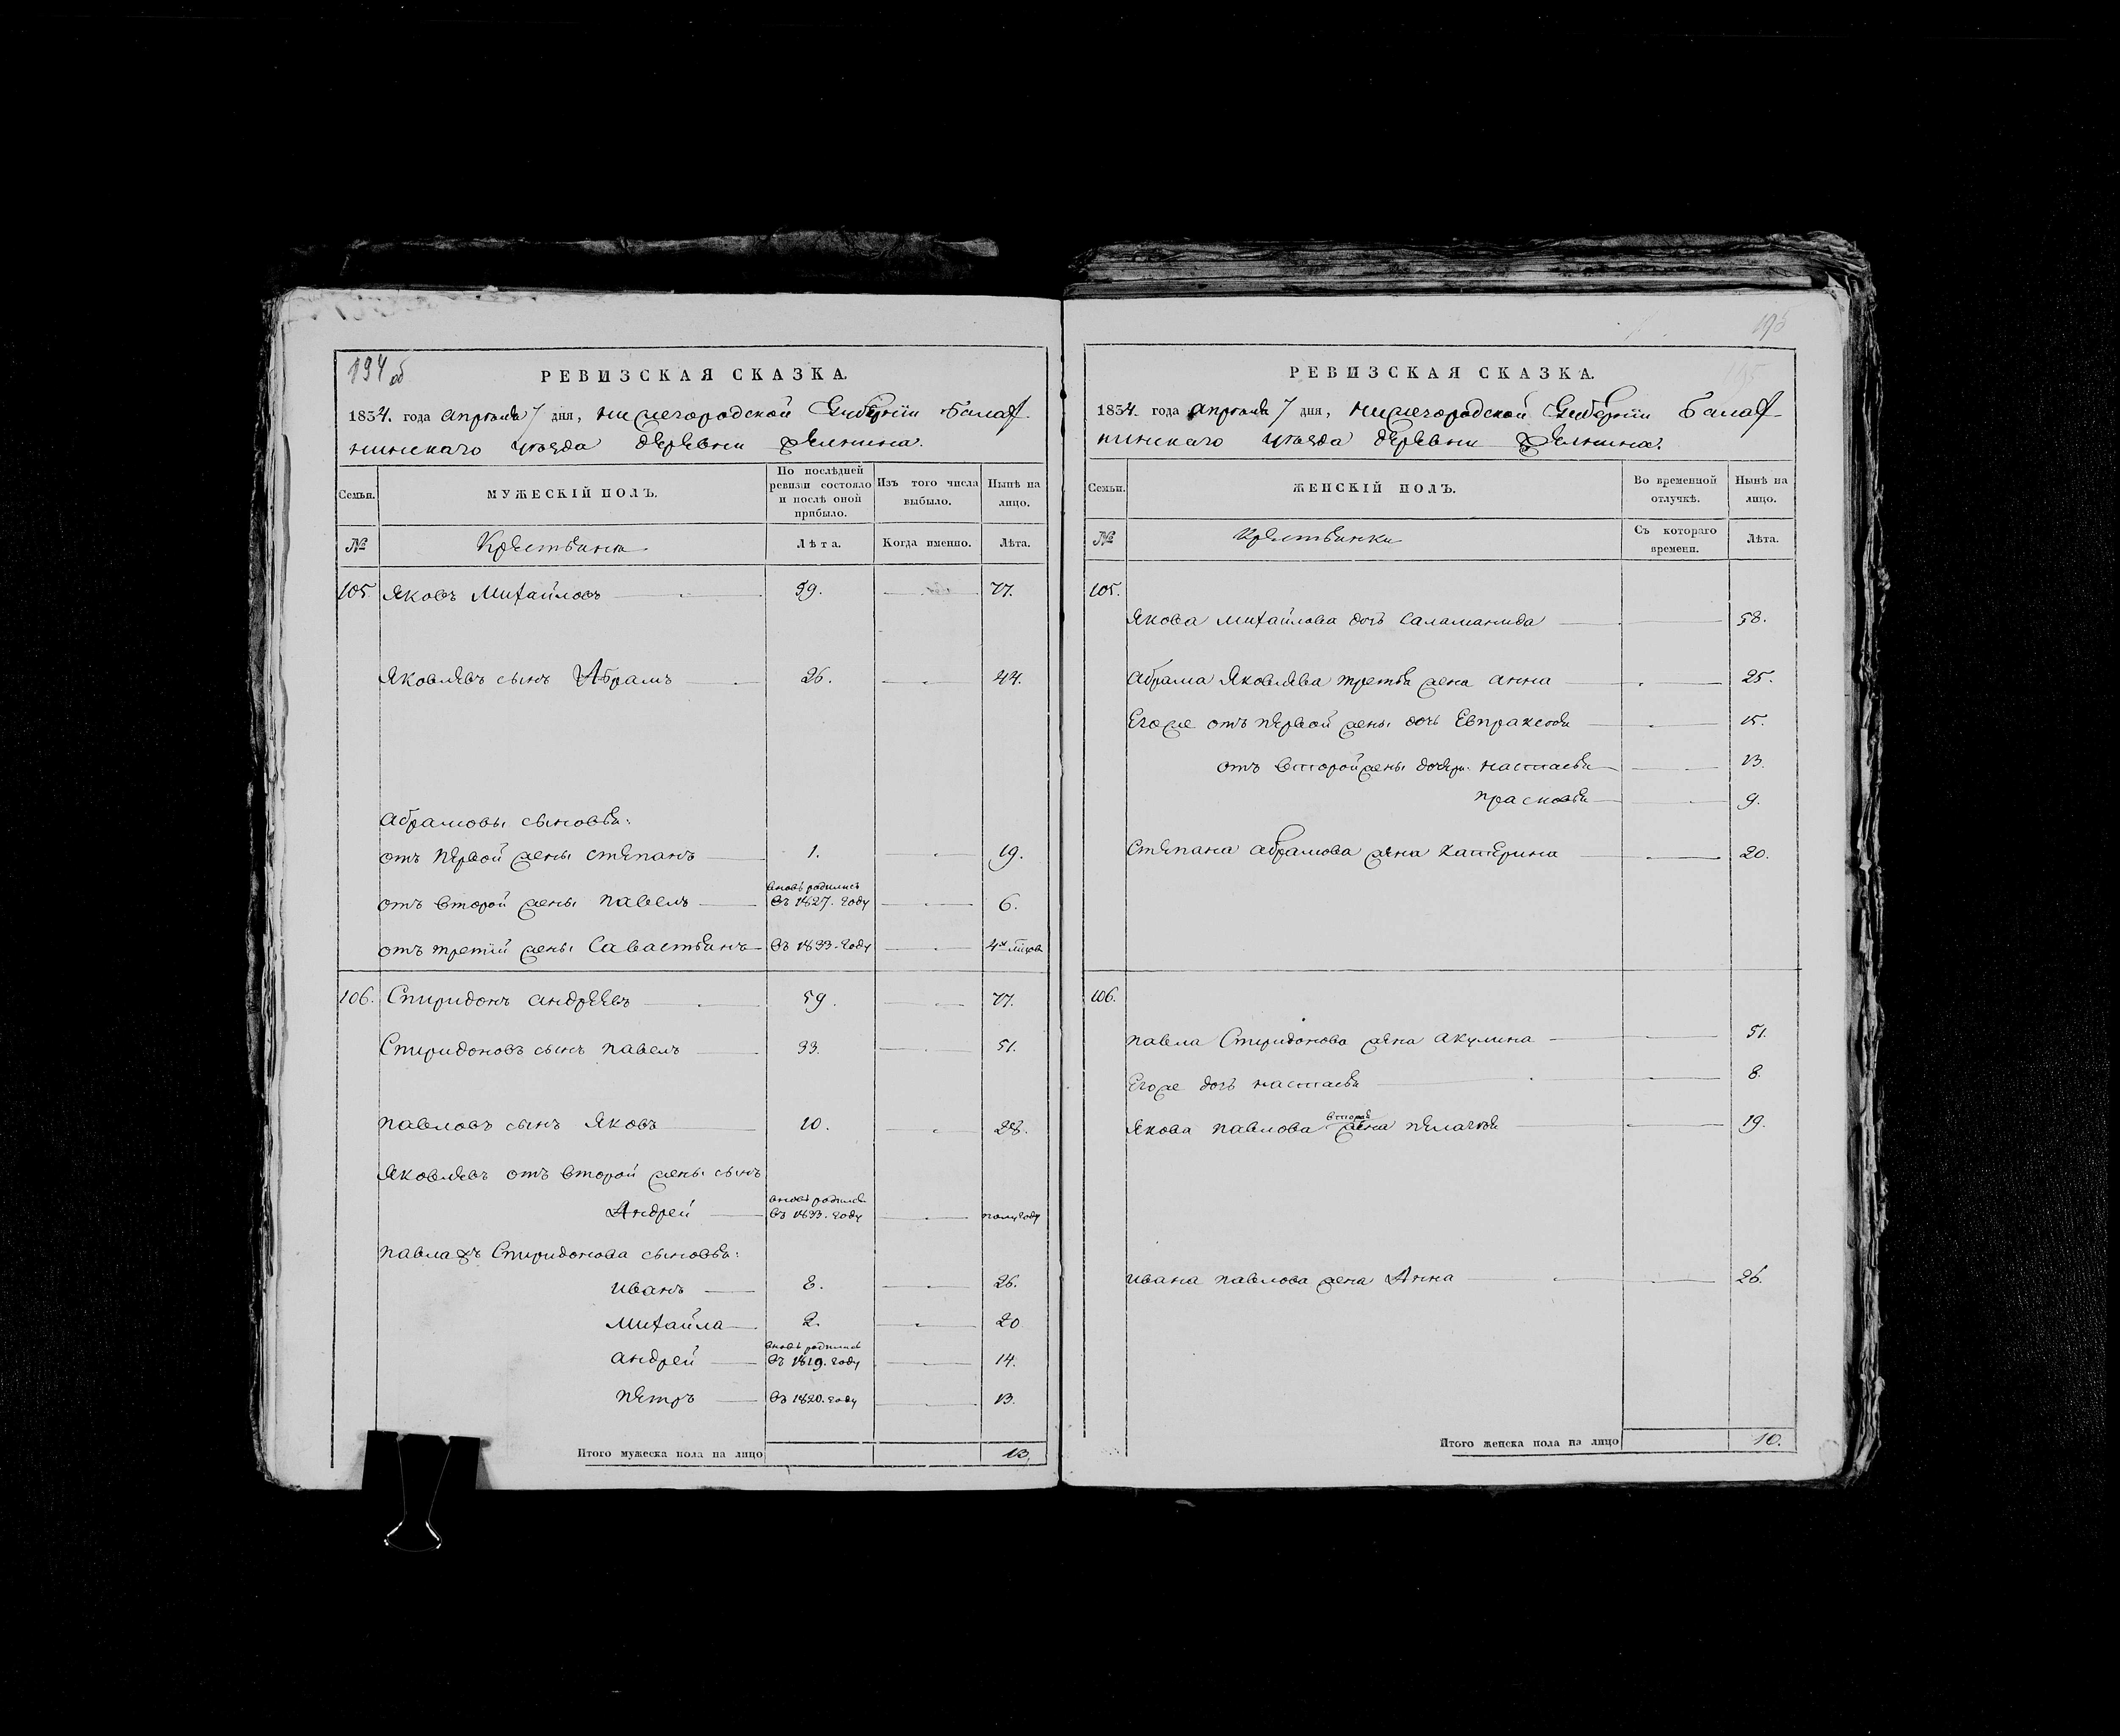 194 об
РЕВИЗСКАЯ СКАЗКА.
1834. года апреля 7 дня, нижегородской Губернiи Балах-
нинскаго уезда деревни Фелнина.
Семьи.
МУЖЕСКІЙ ПОЛЪ.
По послѣдней ревизіи состояло и послѣ оной прибыло.
Изъ того числа выбыло.
Нынѣ на лицо.
№ Крестьяня Лѣта. Когда именно. Лѣта.
105 Яковъ Михайловъ 59. 77.
Яковлевъ сынъ Абрамъ 26. 44.
Абрамовы сыновья:
отъ первой жены степанъ 1. 19.
вновь родились
отъ второй жены павелъ въ 1827. году 6.
отъ третiй жены Савастьянъ въ 1833. году 4х
106. Спиридонъ андреевъ 59. 77.
Спиридоновъ сынъ павелъ 33. 51.
павловъ сынъ Яковъ 10. 28.
Яковлевъ отъ второй жены сынъ
вновь родился
Андрей въ 1833. году полугоду
павла жъ Спиридонова сыновья:
иванъ 8. 26.
Михайла 2. 20
вновь родились
андрей въ 1819. году 14.
петръ въ 1820. году 13.
Итого мужеска пола на лицо 13.
195
195
РЕВИЗСКАЯ СКАЗКА.
1834. года апреля 7 дня, нижегородской Губернiи Балах-
нинскаго уезда деревни Фелнина.
Семьи.
ЖЕНСКІЙ ПОЛЪ.
Во временной отлучкѣ.
Нынѣ на лицо.
№ Крестьянки Съ котораго времени. Лѣта.
105.
Якова михайлова дочь Саламанида 58.
Абрама Яковлева третья жена анна 25.
Егоже отъ первой жены дочь Евпраксея 15.
отъ второй жены дочери настасья 13.
прасковья 9.
Степана абрамова жена катерина 20.
106.
павла Спиридонова жена акулина 51.
Егоже дочь настасья 8.
вторая
Якова павлова жена пелагея 19.
ивана павлова жена Анна 26.
Итого женска пола на лицо 10.